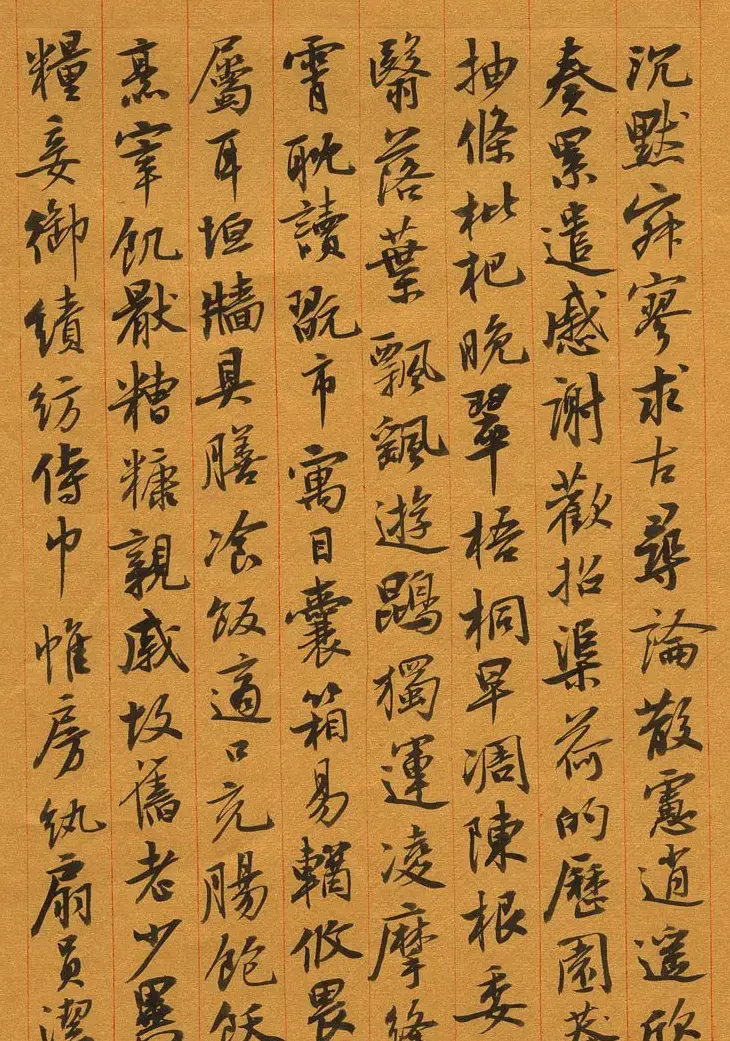 沉默寂寥求古尋論散慮逍遙欣
奏累遣慼謝歡招渠荷的歷園莽
抽條枇杷晚翠梧桐早凋陳根委
翳落葉飄颻遊鵾獨運凌摩絳
霄耽讀翫市寓目囊箱易輶攸畏
屬耳垣牆具膳飡飯適口充腸飽飫
烹宰飢厭糟糠親戚故舊老少異
糧妾御績紡侍巾帷房紈扇員潔